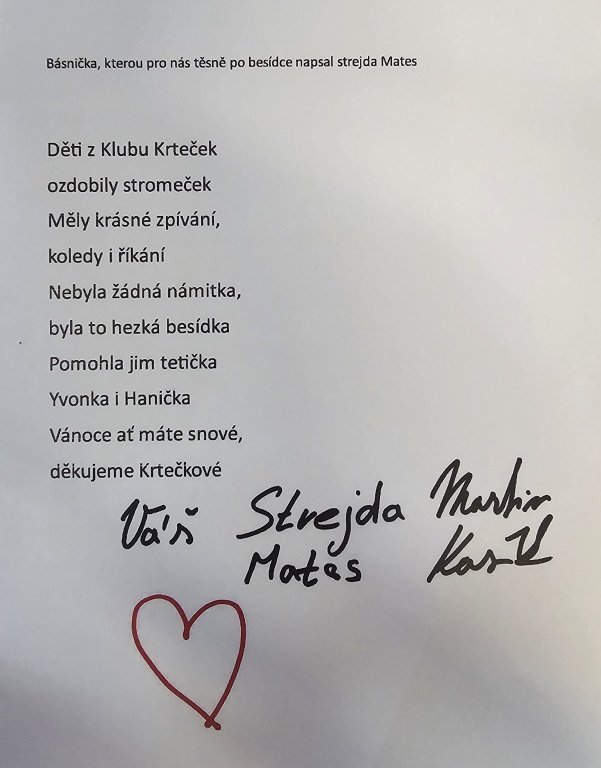 Básnička, kterou pro nás těsně po besídce napsal strejda Mates
Děti z Klubu Krteček
ozdobily stromeček
Měly krásné zpívání,
koledy i říkání
Nebyla žádná námitka,
byla to hezká besídka
Pomohla jim tetička
Yvonka i Hanička
Vánoce ať máte snové,
děkujeme Krtečkové
Váš Strejda Martin
Mates